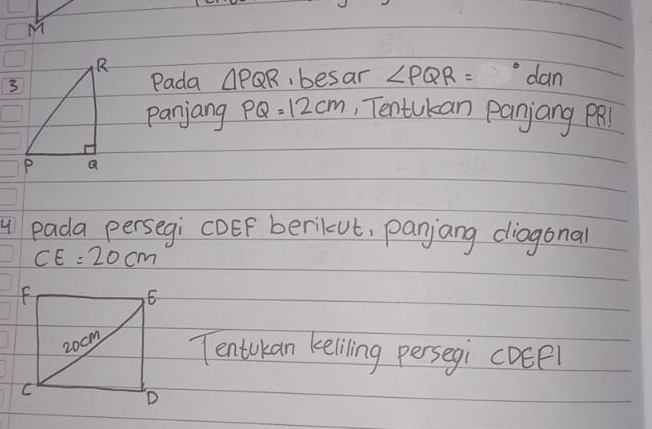 M
3
R
Pada ΔPQR, besar ∠PQR = ° dan
Panjang PQ = 12 cm, Tentukan panjang PR!
P Q
4 Pada persegi CDEF berikut, panjang diagonal
CE = 20 cm
F E
20cm
Tentukan keliling persegi CDEF!
C D